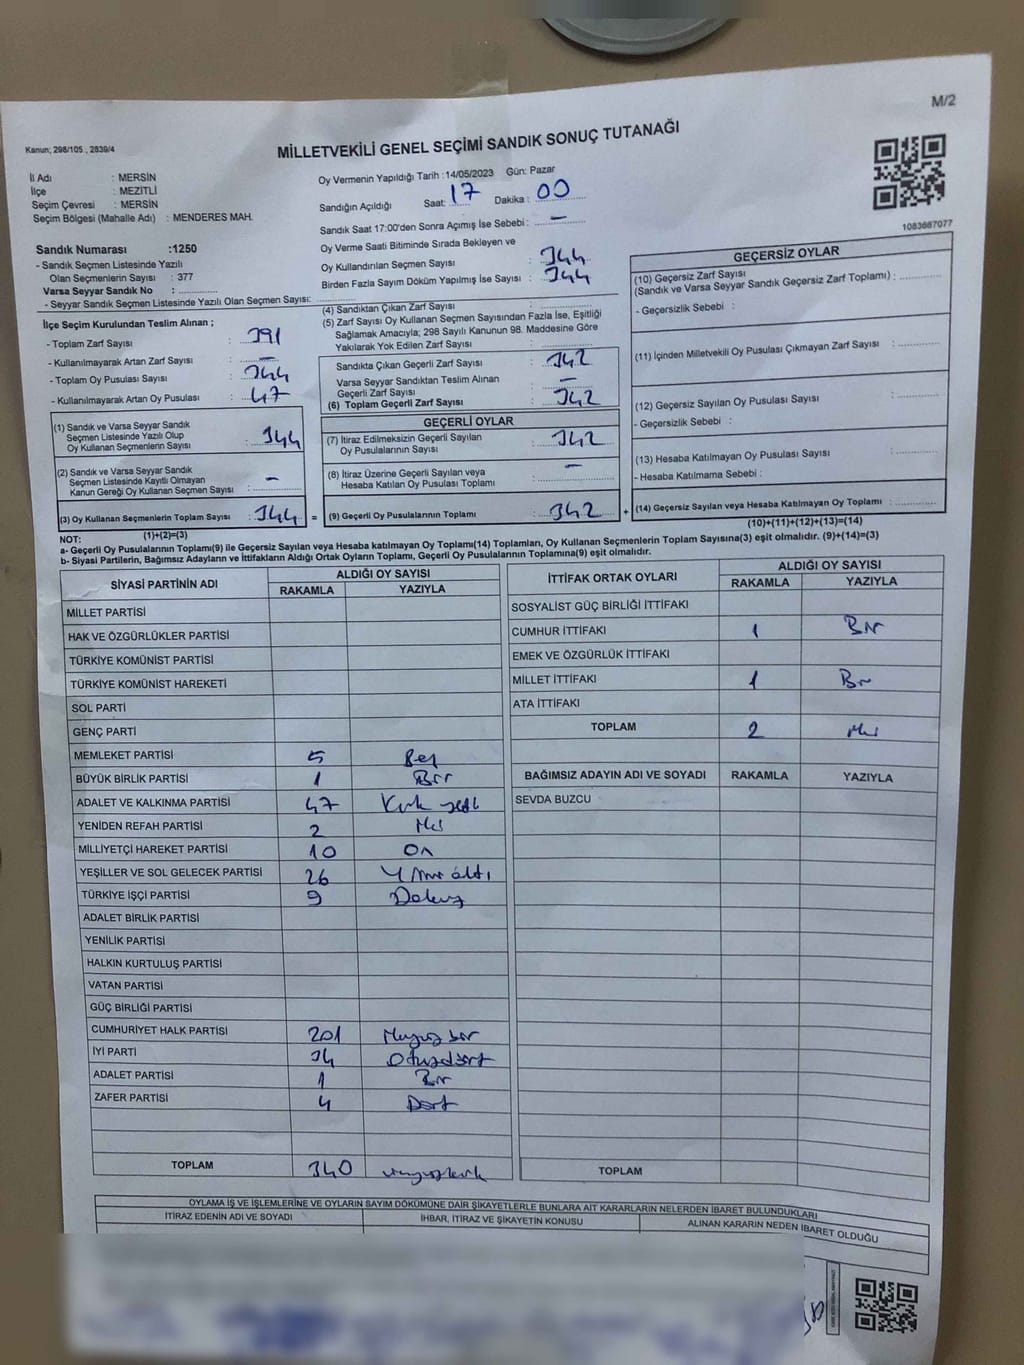 M/2
Kanun; 298/105 , 2839/4
MİLLETVEKİLİ GENEL SEÇİMİ SANDIK SONUÇ TUTANAĞI
İl Adı : MERSİN
İlçe : MEZİTLİ
Seçim Çevresi : MERSİN
Seçim Bölgesi (Mahalle Adı) : MENDERES MAH.
Oy Vermenin Yapıldığı Tarih :14/05/2023 Gün: Pazar
Sandığın Açıldığı Saat: 17 Dakika : 00
Sandık Saat 17:00'den Sonra Açımış İse Sebebi : —
Oy Verme Saati Bitiminde Sırada Bekleyen ve
Oy Kullandırılan Seçmen Sayısı : 344
Birden Fazla Sayım Döküm Yapılmış İse Sayısı : 344
1083667077
Sandık Numarası :1250
- Sandık Seçmen Listesinde Yazılı
Olan Seçmenlerin Sayısı : 377
Varsa Seyyar Sandık No :
- Seyyar Sandık Seçmen Listesinde Yazılı Olan Seçmen Sayısı:
İlçe Seçim Kurulundan Teslim Alınan ;
- Toplam Zarf Sayısı : 391
- Kullanılmayarak Artan Zarf Sayısı : —
- Toplam Oy Pusulası Sayısı : 344
- Kullanılmayarak Artan Oy Pusulası : 47
(1) Sandık ve Varsa Seyyar Sandık
Seçmen Listesinde Yazılı Olup
Oy Kullanan Seçmenlerin Sayısı : 344
(2) Sandık ve Varsa Seyyar Sandık
Seçmen Listesinde Kayıtlı Olmayan
Kanun Gereği Oy Kullanan Seçmen Sayısı : —
(3) Oy Kullanan Seçmenlerin Toplam Sayısı : 344 =
(1)+(2)=(3)
(4) Sandıktan Çıkan Zarf Sayısı :
(5) Zarf Sayısı Oy Kullanan Seçmen Sayısından Fazla İse, Eşitliği
Sağlamak Amacıyla; 298 Sayılı Kanunun 98. Maddesine Göre
Yakılarak Yok Edilen Zarf Sayısı :
Sandıkta Çıkan Geçerli Zarf Sayısı : 342
Varsa Seyyar Sandıktan Teslim Alınan
Geçerli Zarf Sayısı : —
(6) Toplam Geçerli Zarf Sayısı : 342
GEÇERLİ OYLAR
(7) İtiraz Edilmeksizin Geçerli Sayılan
Oy Pusulalarının Sayısı : 342
(8) İtiraz Üzerine Geçerli Sayılan veya
Hesaba Katılan Oy Pusulası Toplamı : —
(9) Geçerli Oy Pusulalarının Toplamı : 342 +
GEÇERSİZ OYLAR
(10) Geçersiz Zarf Sayısı
(Sandık ve Varsa Seyyar Sandık Geçersiz Zarf Toplamı) :
- Geçersizlik Sebebi :
(11) İçinden Milletvekili Oy Pusulası Çıkmayan Zarf Sayısı :
(12) Geçersiz Sayılan Oy Pusulası Sayısı :
- Geçersizlik Sebebi :
(13) Hesaba Katılmayan Oy Pusulası Sayısı :
- Hesaba Katılmama Sebebi :
(14) Geçersiz Sayılan veya Hesaba Katılmayan Oy Toplamı :
(10)+(11)+(12)+(13)=(14)
NOT:
a- Geçerli Oy Pusulalarının Toplamı(9) ile Geçersiz Sayılan veya Hesaba katılmayan Oy Toplamı(14) Toplamları, Oy Kullanan Seçmenlerin Toplam Sayısına(3) eşit olmalıdır. (9)+(14)=(3)
b- Siyasi Partilerin, Bağımsız Adayların ve İttifakların Aldığı Ortak Oyların Toplamı, Geçerli Oy Pusulalarının Toplamına(9) eşit olmalıdır.
SİYASİ PARTİNİN ADI ALDIĞI OY SAYISI
RAKAMLA YAZIYLA
MİLLET PARTİSİ
HAK VE ÖZGÜRLÜKLER PARTİSİ
TÜRKİYE KOMÜNİST PARTİSİ
TÜRKİYE KOMÜNİST HAREKETİ
SOL PARTİ
GENÇ PARTİ
MEMLEKET PARTİSİ 5 Beş
BÜYÜK BİRLİK PARTİSİ 1 Bir
ADALET VE KALKINMA PARTİSİ 47 Kırk yedi
YENİDEN REFAH PARTİSİ 2 İki
MİLLİYETÇİ HAREKET PARTİSİ 10 On
YEŞİLLER VE SOL GELECEK PARTİSİ 26 Yirmi altı
TÜRKİYE İŞÇİ PARTİSİ 9 Dokuz
ADALET BİRLİK PARTİSİ
YENİLİK PARTİSİ
HALKIN KURTULUŞ PARTİSİ
VATAN PARTİSİ
GÜÇ BİRLİĞİ PARTİSİ
CUMHURİYET HALK PARTİSİ 201 İkiyüz bir
İYİ PARTİ 34 Otuzdört
ADALET PARTİSİ 1 Bir
ZAFER PARTİSİ 4 Dört
TOPLAM 340 üçyüzkırk
İTTİFAK ORTAK OYLARI ALDIĞI OY SAYISI
RAKAMLA YAZIYLA
SOSYALİST GÜÇ BİRLİĞİ İTTİFAKI
CUMHUR İTTİFAKI 1 Bir
EMEK VE ÖZGÜRLÜK İTTİFAKI
MİLLET İTTİFAKI 1 Bir
ATA İTTİFAKI
TOPLAM 2 İki
BAĞIMSIZ ADAYIN ADI VE SOYADI RAKAMLA YAZIYLA
SEVDA BUZCU
TOPLAM
OYLAMA İŞ VE İŞLEMLERİNE VE OYLARIN SAYIM DÖKÜMÜNE DAİR ŞİKAYETLERLE BUNLARA AİT KARARLARIN NELERDEN İBARET BULUNDUKLARI
İTİRAZ EDENİN ADI VE SOYADI İHBAR, İTİRAZ VE ŞİKAYETİN KONUSU ALINAN KARARIN NEDEN İBARET OLDUĞU